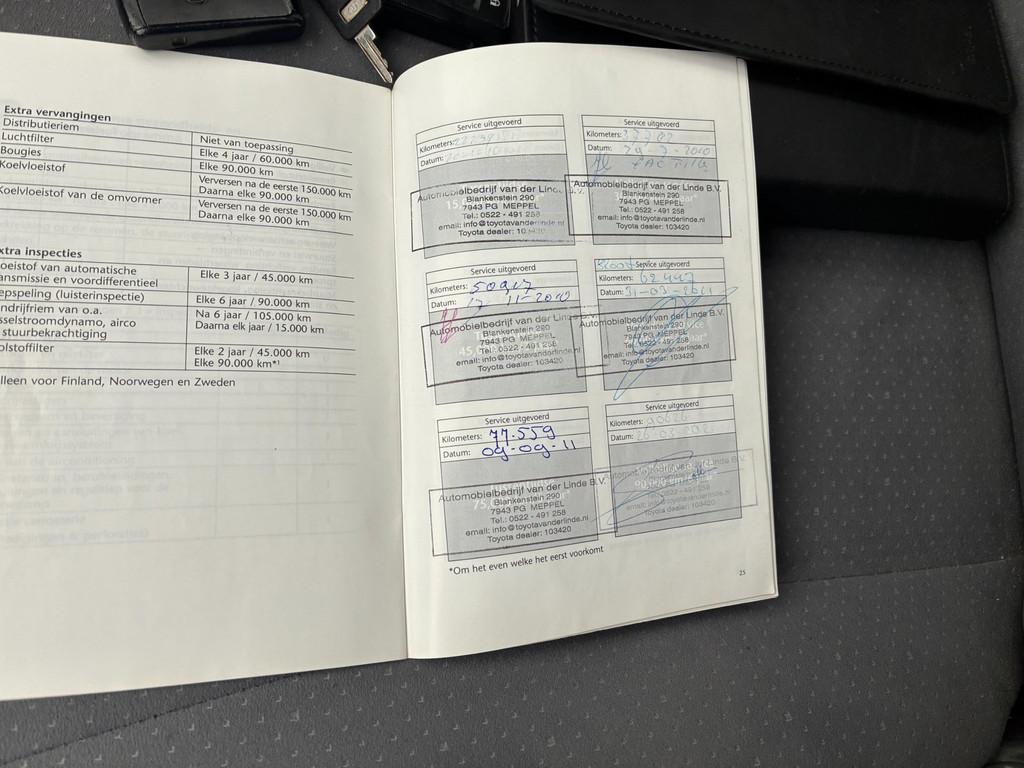 Extra vervangingen
Distributieriem Niet van toepassing
Luchtfilter Elke 4 jaar / 60.000 km
Bougies Elke 90.000 km
Koelvloeistof Verversen na de eerste 150.000 km
Daarna elke 90.000 km
Koelvloeistof van de omvormer Verversen na de eerste 150.000 km
Daarna elke 90.000 km
xtra inspecties
oeistof van automatische
ansmissie en voordifferentieel Elke 3 jaar / 45.000 km
epspeling (luisterinspectie) Elke 6 jaar / 90.000 km
ndrijfriem van o.a. Na 6 jaar / 105.000 km
sselstroomdynamo, airco Daarna elk jaar / 15.000 km
stuurbekrachtiging
olstoffilter Elke 2 jaar / 45.000 km
Elke 90.000 km*¹
lleen voor Finland, Noorwegen en Zweden
Service uitgevoerd
Kilometers:
Datum:
Automobielbedrijf van der Linde B.V.
Blankenstein 290
7943 PG MEPPEL
Tel.: 0522 - 491 258
email: info@toyotavanderlinde.nl
Toyota dealer:
Service uitgevoerd
Kilometers:
Datum: 29-3-2010
Automobielbedrijf van der Linde B.V.
Blankenstein 290
7943 PG MEPPEL
Tel.: 0522 - 491 258
email: info@toyotavanderlinde.nl
Toyota dealer: 103420
Service uitgevoerd
Kilometers: 50917
Datum: 17-11-2010
Automobielbedrijf van der Linde B.V.
Blankenstein 290
7943 PG MEPPEL
Tel.: 0522 - 491 258
email: info@toyotavanderlinde.nl
Toyota dealer: 103420
Service uitgevoerd
Kilometers: 62447
Datum: 31-03-2011
Automobielbedrijf van der Linde B.V.
Blankenstein 290
7943 PG MEPPEL
Tel.: 0522 - 491 258
email: info@toyotavanderlinde.nl
Toyota dealer: 103420
Service uitgevoerd
Kilometers: 77.559
Datum: 09-09-11
Automobielbedrijf van der Linde B.V.
Blankenstein 290
7943 PG MEPPEL
Tel.: 0522 - 491 258
email: info@toyotavanderlinde.nl
Toyota dealer: 103420
Service uitgevoerd
Kilometers:
Datum:
Automobielbedrijf van der Linde B.V.
90.000 km
Toyota dealer: 103420
*Om het even welke het eerst voorkomt
25